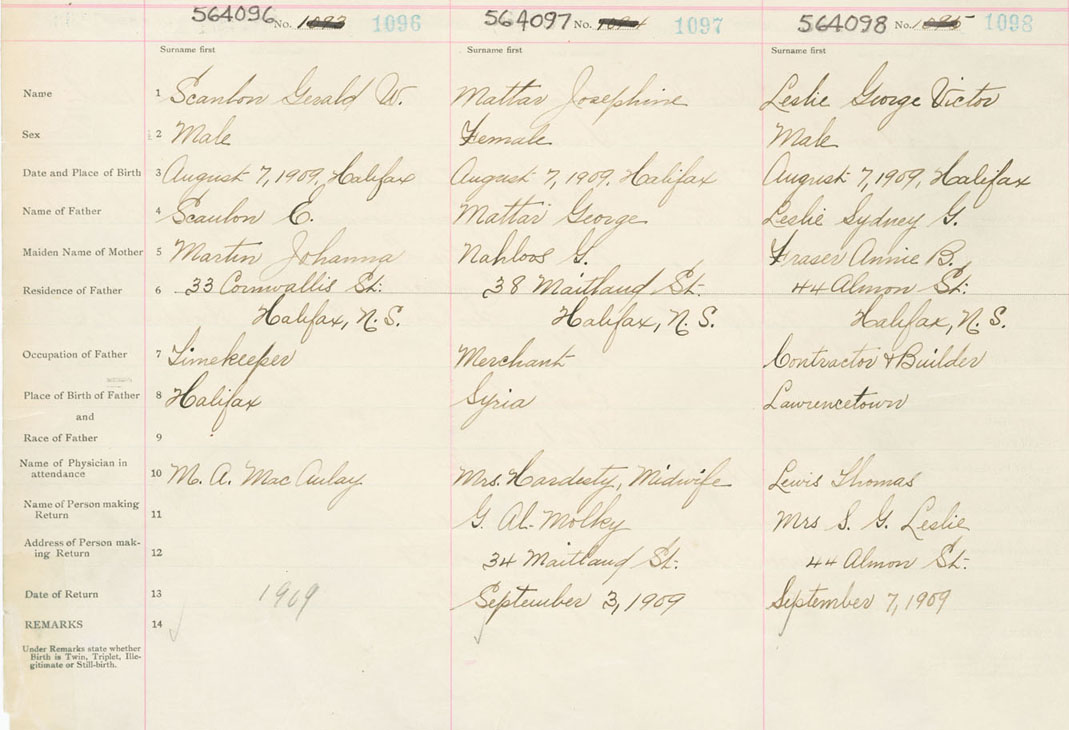 564096 No. 1093 1096 564097 No. 1094 1097 564098 No. 1095 1098
Surname first Surname first Surname first
Name 1 Scanlon Gerald W. Mattar Josephine Leslie George Victor
Sex 2 Male Female Male
Date and Place of Birth 3 August 7, 1909, Halifax August 7, 1909, Halifax August 7, 1909, Halifax
Name of Father 4 Scanlon E. Mattar George Leslie Sydney G.
Maiden Name of Mother 5 Martin Johanna Nahloos G. Fraser Annie B.
Residence of Father 6 33 Cornwallis St. 38 Maitland St. 44 Almon St.
Halifax, N.S. Halifax, N.S. Halifax, N.S.
Occupation of Father 7 Timekeeper Merchant Contractor & Builder
Place of Birth of Father 8 Halifax Syria Lawrencetown
and
Race of Father 9
Name of Physician in
attendance 10 M. A. MacAulay Mrs. Hardesty, Midwife Lewis Thomas
Name of Person making
Return 11 G. Al-Molky Mrs S. G. Leslie
Address of Person mak-
ing Return 12 34 Maitland St. 44 Almon St.
Date of Return 13 1909 September 3, 1909 September 7, 1909
REMARKS 14
Under Remarks state whether
Birth is Twin, Triplet, Ille-
gitimate or Still-birth.